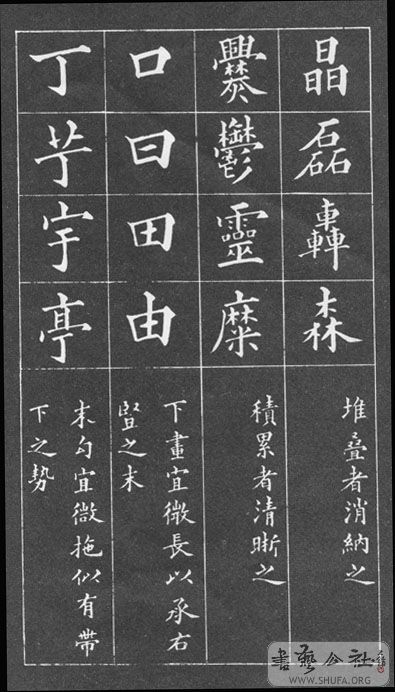 晶磊轟森
堆叠者消納之
爨鬱靈糜
積累者清晰之
口曰田由
下畫宜微長以承右
豎之末
丁芋宇亭
末勾宜微拖似有帶
下之勢
書藝公社
WWW.SHUFA.ORG